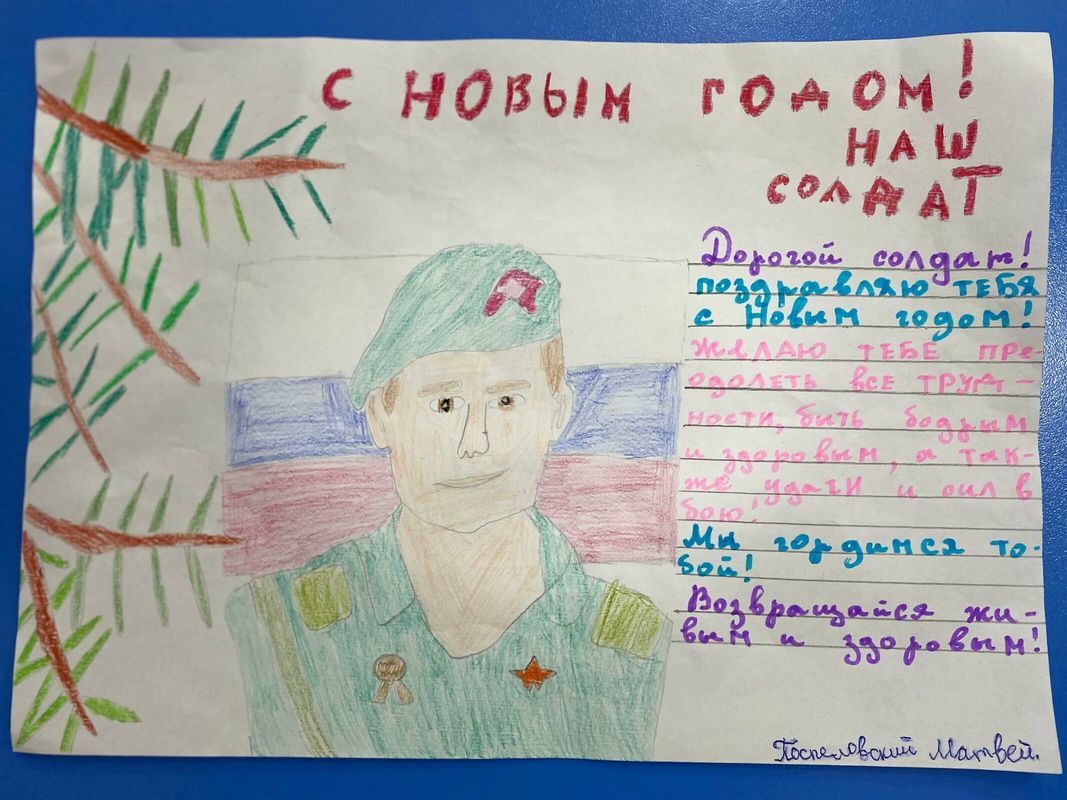 С НОВЫМ ГОДОМ!
НАШ
СОЛДАТ
Дорогой солдат!
поздравляю ТЕБЯ
с Новым годом!
ЖЕЛАЮ ТЕБЕ ПРЕ-
ОДОЛЕТЬ ВСЕ ТРУД-
ности, быть бодрым
и здоровым, а так-
же удачи и сил в
бою!
Мы гордимся то-
бой!
Возвращайся жи-
вым и здоровым!
Поспеловский Матвей.